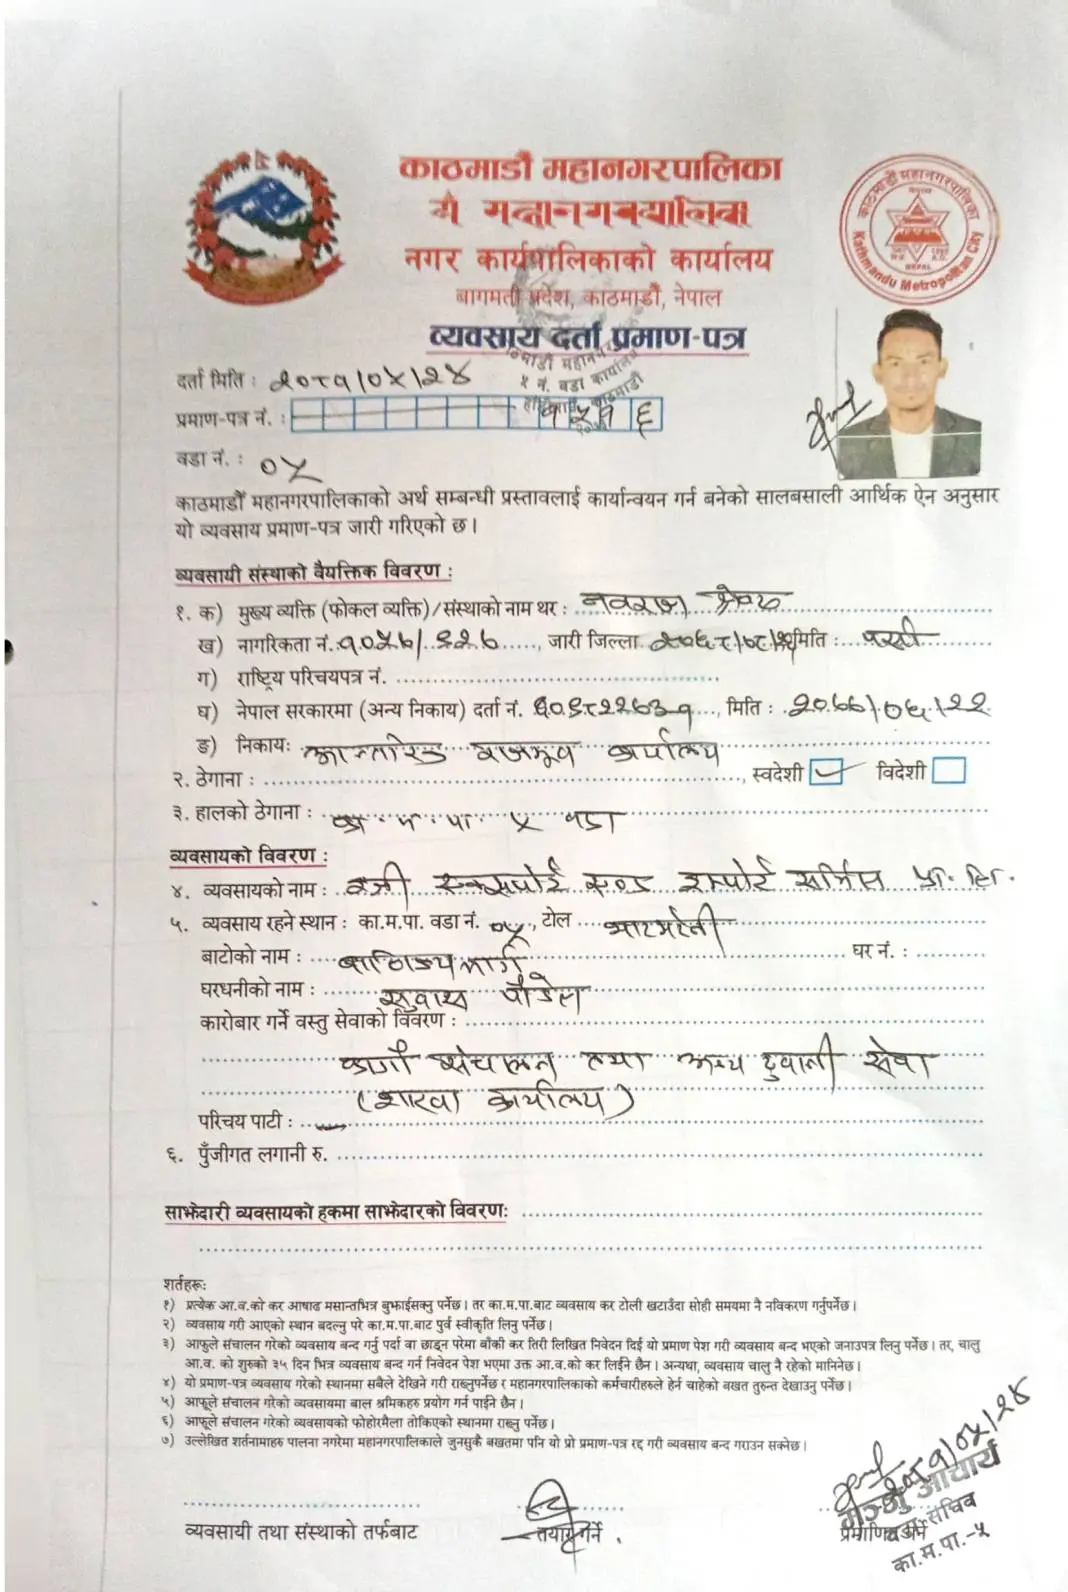 काठमाडौं महानगरपालिका
नगर कार्यपालिकाको कार्यालय
बागमती प्रदेश, काठमाडौं, नेपाल
काठमाडौं महानगरपालिका
Kathmandu Metropolitan City
NEPAL
व्यवसाय दर्ता प्रमाण-पत्र
दर्ता मिति : २०८१/०५/२४
प्रमाण-पत्र नं. : १५१६
वडा नं. : ०५
काठमाडौं महानगरपालिकाको अर्थ सम्बन्धी प्रस्तावलाई कार्यान्वयन गर्न बनेको सालबसाली आर्थिक ऐन अनुसार
यो व्यवसाय प्रमाण-पत्र जारी गरिएको छ।
व्यवसायी संस्थाको वैयक्तिक विवरण :
१. क) मुख्य व्यक्ति (फोकल व्यक्ति)/संस्थाको नाम थर : नवराज श्रेष्ठ
ख) नागरिकता नं. , जारी जिल्ला मिति :
ग) राष्ट्रिय परिचयपत्र नं.
घ) नेपाल सरकारमा (अन्य निकाय) दर्ता नं. , मिति :
ङ) निकायः आन्तरिक राजश्व कार्यालय
२. ठेगाना : , स्वदेशी विदेशी
३. हालको ठेगाना : का.म.पा. ५ वडा
व्यवसायको विवरण :
४. व्यवसायको नाम : एक्सपोर्ट एण्ड इम्पोर्ट सर्भिस प्रा.लि.
५. व्यवसाय रहने स्थान : का.म.पा. वडा नं. ०५, टोल भाटभटेनी
बाटोको नाम : बाणिज्य मार्ग घर नं. :
घरधनीको नाम : सुवास पौडेल
कारोबार गर्ने वस्तु सेवाको विवरण :
कार्गो संचालन तथा अन्य ढुवानी सेवा
(शाखा कार्यालय)
परिचय पाटी :
६. पुँजीगत लगानी रु.
साझेदारी व्यवसायको हकमा साझेदारको विवरणः
शर्तहरूः
१) प्रत्येक आ.व.को कर आषाढ मसान्तभित्र बुझाईसक्नु पर्नेछ। तर का.म.पा.बाट व्यवसाय कर टोली खटाउँदा सोही समयमा नै नविकरण गर्नुपर्नेछ।
२) व्यवसाय गरी आएको स्थान बदल्नु परे का.म.पा.बाट पुर्व स्वीकृति लिनु पर्नेछ।
३) आफुले संचालन गरेको व्यवसाय बन्द गर्नु पर्दा वा छाड्न परेमा बाँकी कर तिरी लिखित निवेदन दिई यो प्रमाण पेश गरी व्यवसाय बन्द भएको जनाउपत्र लिनु पर्नेछ। तर, चालु
आ.व. को शुरुको ३५ दिन भित्र व्यवसाय बन्द गर्न निवेदन पेश भएमा उक्त आ.व.को कर लिईने छैन। अन्यथा, व्यवसाय चालु नै रहेको मानिनेछ।
४) यो प्रमाण-पत्र व्यवसाय गरेको स्थानमा सबैले देखिने गरी राख्नुपर्नेछ र महानगरपालिकाको कर्मचारीहरुले हेर्न चाहेको बखत तुरुन्त देखाउनु पर्नेछ।
५) आफूले संचालन गरेको व्यवसायमा बाल श्रमिकहरु प्रयोग गर्न पाईने छैन।
६) आफूले संचालन गरेको व्यवसायको फोहोरमैला तोकिएको स्थानमा राख्नु पर्नेछ।
७) उल्लेखित शर्तनामाहरु पालना नगरेमा महानगरपालिकाले जुनसुकै बखतमा पनि यो प्रो प्रमाण-पत्र रद्द गरी व्यवसाय बन्द गराउन सक्नेछ।
२०८१/०५/२४
मञ्जु आचार्य
वडा सचिव
का.म.पा.-५
व्यवसायी तथा संस्थाको तर्फबाट तयार गर्ने प्रमाणित गर्ने